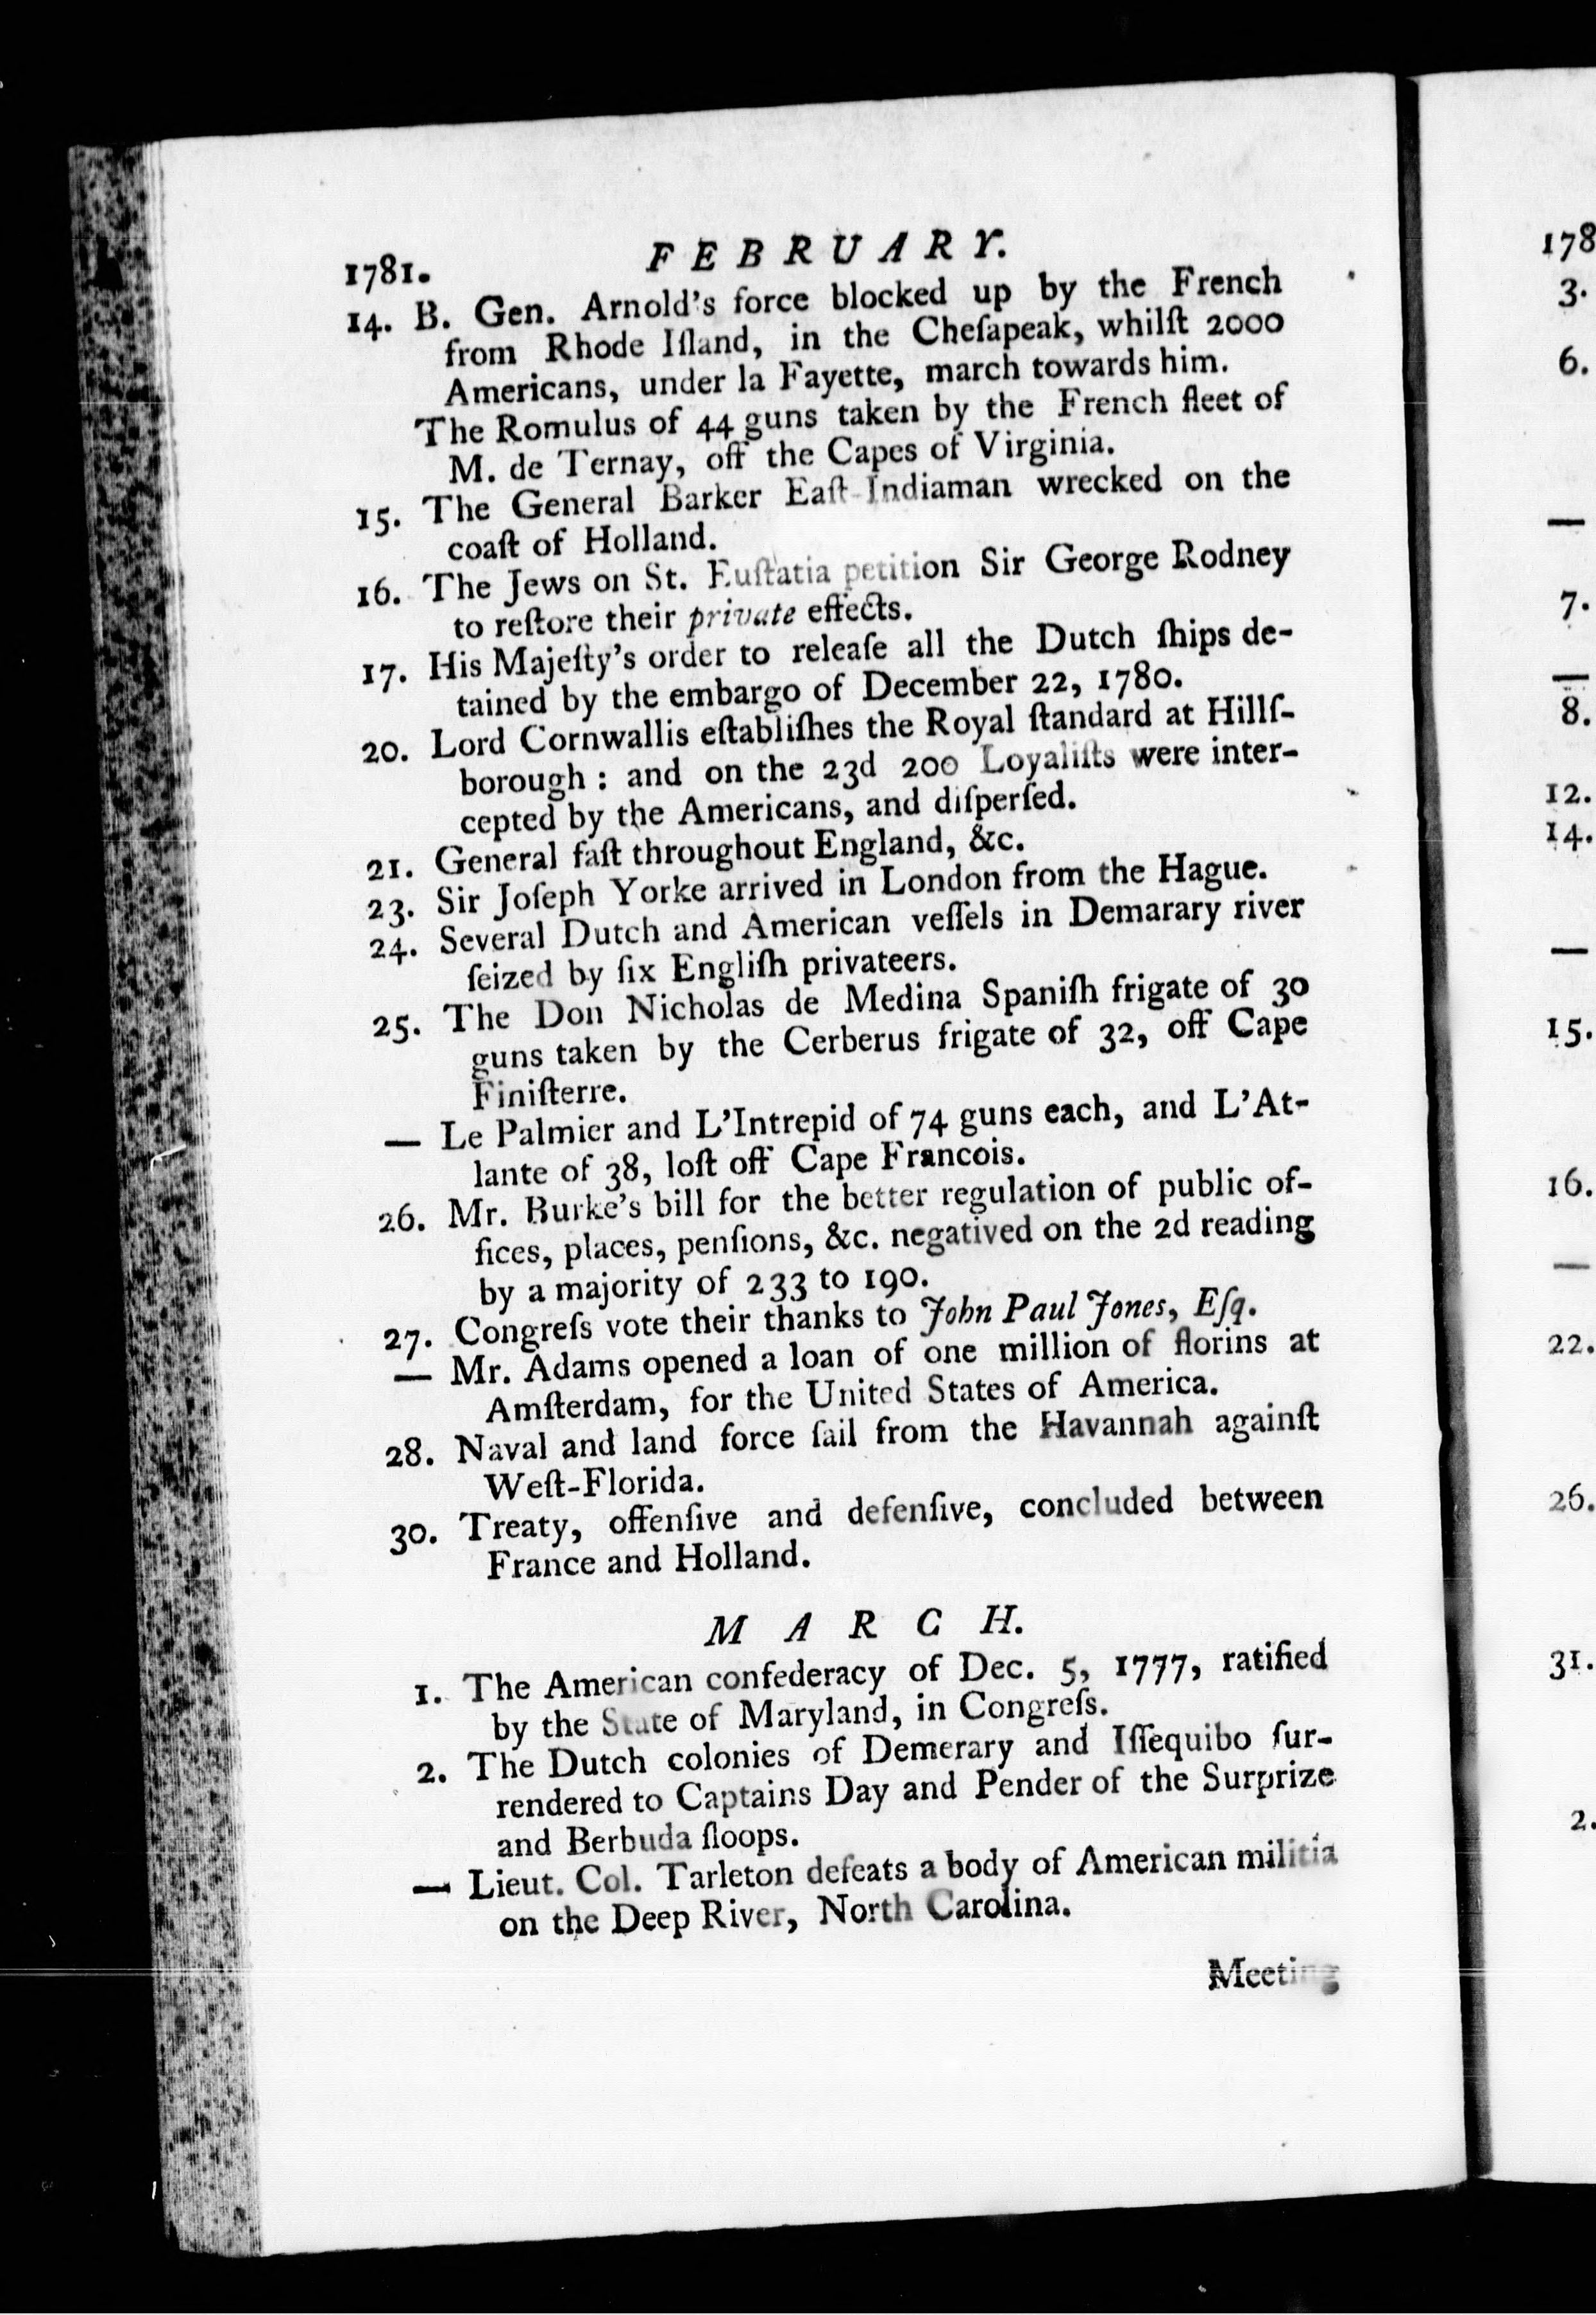 1781. FEBRUARY.
14. B. Gen. Arnold's force blocked up by the French
from Rhode Iſland, in the Cheſapeak, whilſt 2000
Americans, under la Fayette, march towards him.
The Romulus of 44 guns taken by the French fleet of
M. de Ternay, off the Capes of Virginia.
15. The General Barker Eaſt-Indiaman wrecked on the
coaſt of Holland.
16. The Jews on St. Euſtatia petition Sir George Rodney
to reſtore their private effects.
17. His Majeſty's order to releaſe all the Dutch ſhips de-
tained by the embargo of December 22, 1780.
20. Lord Cornwallis eſtabliſhes the Royal ſtandard at Hillſ-
borough : and on the 23d 200 Loyaliſts were inter-
cepted by the Americans, and diſperſed.
21. General faſt throughout England, &c.
23. Sir Joſeph Yorke arrived in London from the Hague.
24. Several Dutch and American veſſels in Demarary river
ſeized by ſix Engliſh privateers.
25. The Don Nicholas de Medina Spaniſh frigate of 30
guns taken by the Cerberus frigate of 32, off Cape
Finiſterre.
— Le Palmier and L'Intrepid of 74 guns each, and L'At-
lante of 38, loſt off Cape Francois.
26. Mr. Burke's bill for the better regulation of public of-
fices, places, penſions, &c. negatived on the 2d reading
by a majority of 233 to 190.
27. Congreſs vote their thanks to John Paul Jones, Eſq.
— Mr. Adams opened a loan of one million of florins at
Amſterdam, for the United States of America.
28. Naval and land force ſail from the Havannah againſt
Weſt-Florida.
30. Treaty, offenſive and defenſive, concluded between
France and Holland.
MARCH.
1. The American confederacy of Dec. 5, 1777, ratified
by the State of Maryland, in Congreſs.
2. The Dutch colonies of Demerary and Iſſequibo ſur-
rendered to Captains Day and Pender of the Surprize
and Berbuda ſloops.
— Lieut. Col. Tarleton defeats a body of American militia
on the Deep River, North Carolina.
Meeting
178
3.
6.
—
7.
—
8.
12.
14.
—
15.
16.
—
22.
26.
31.
2.